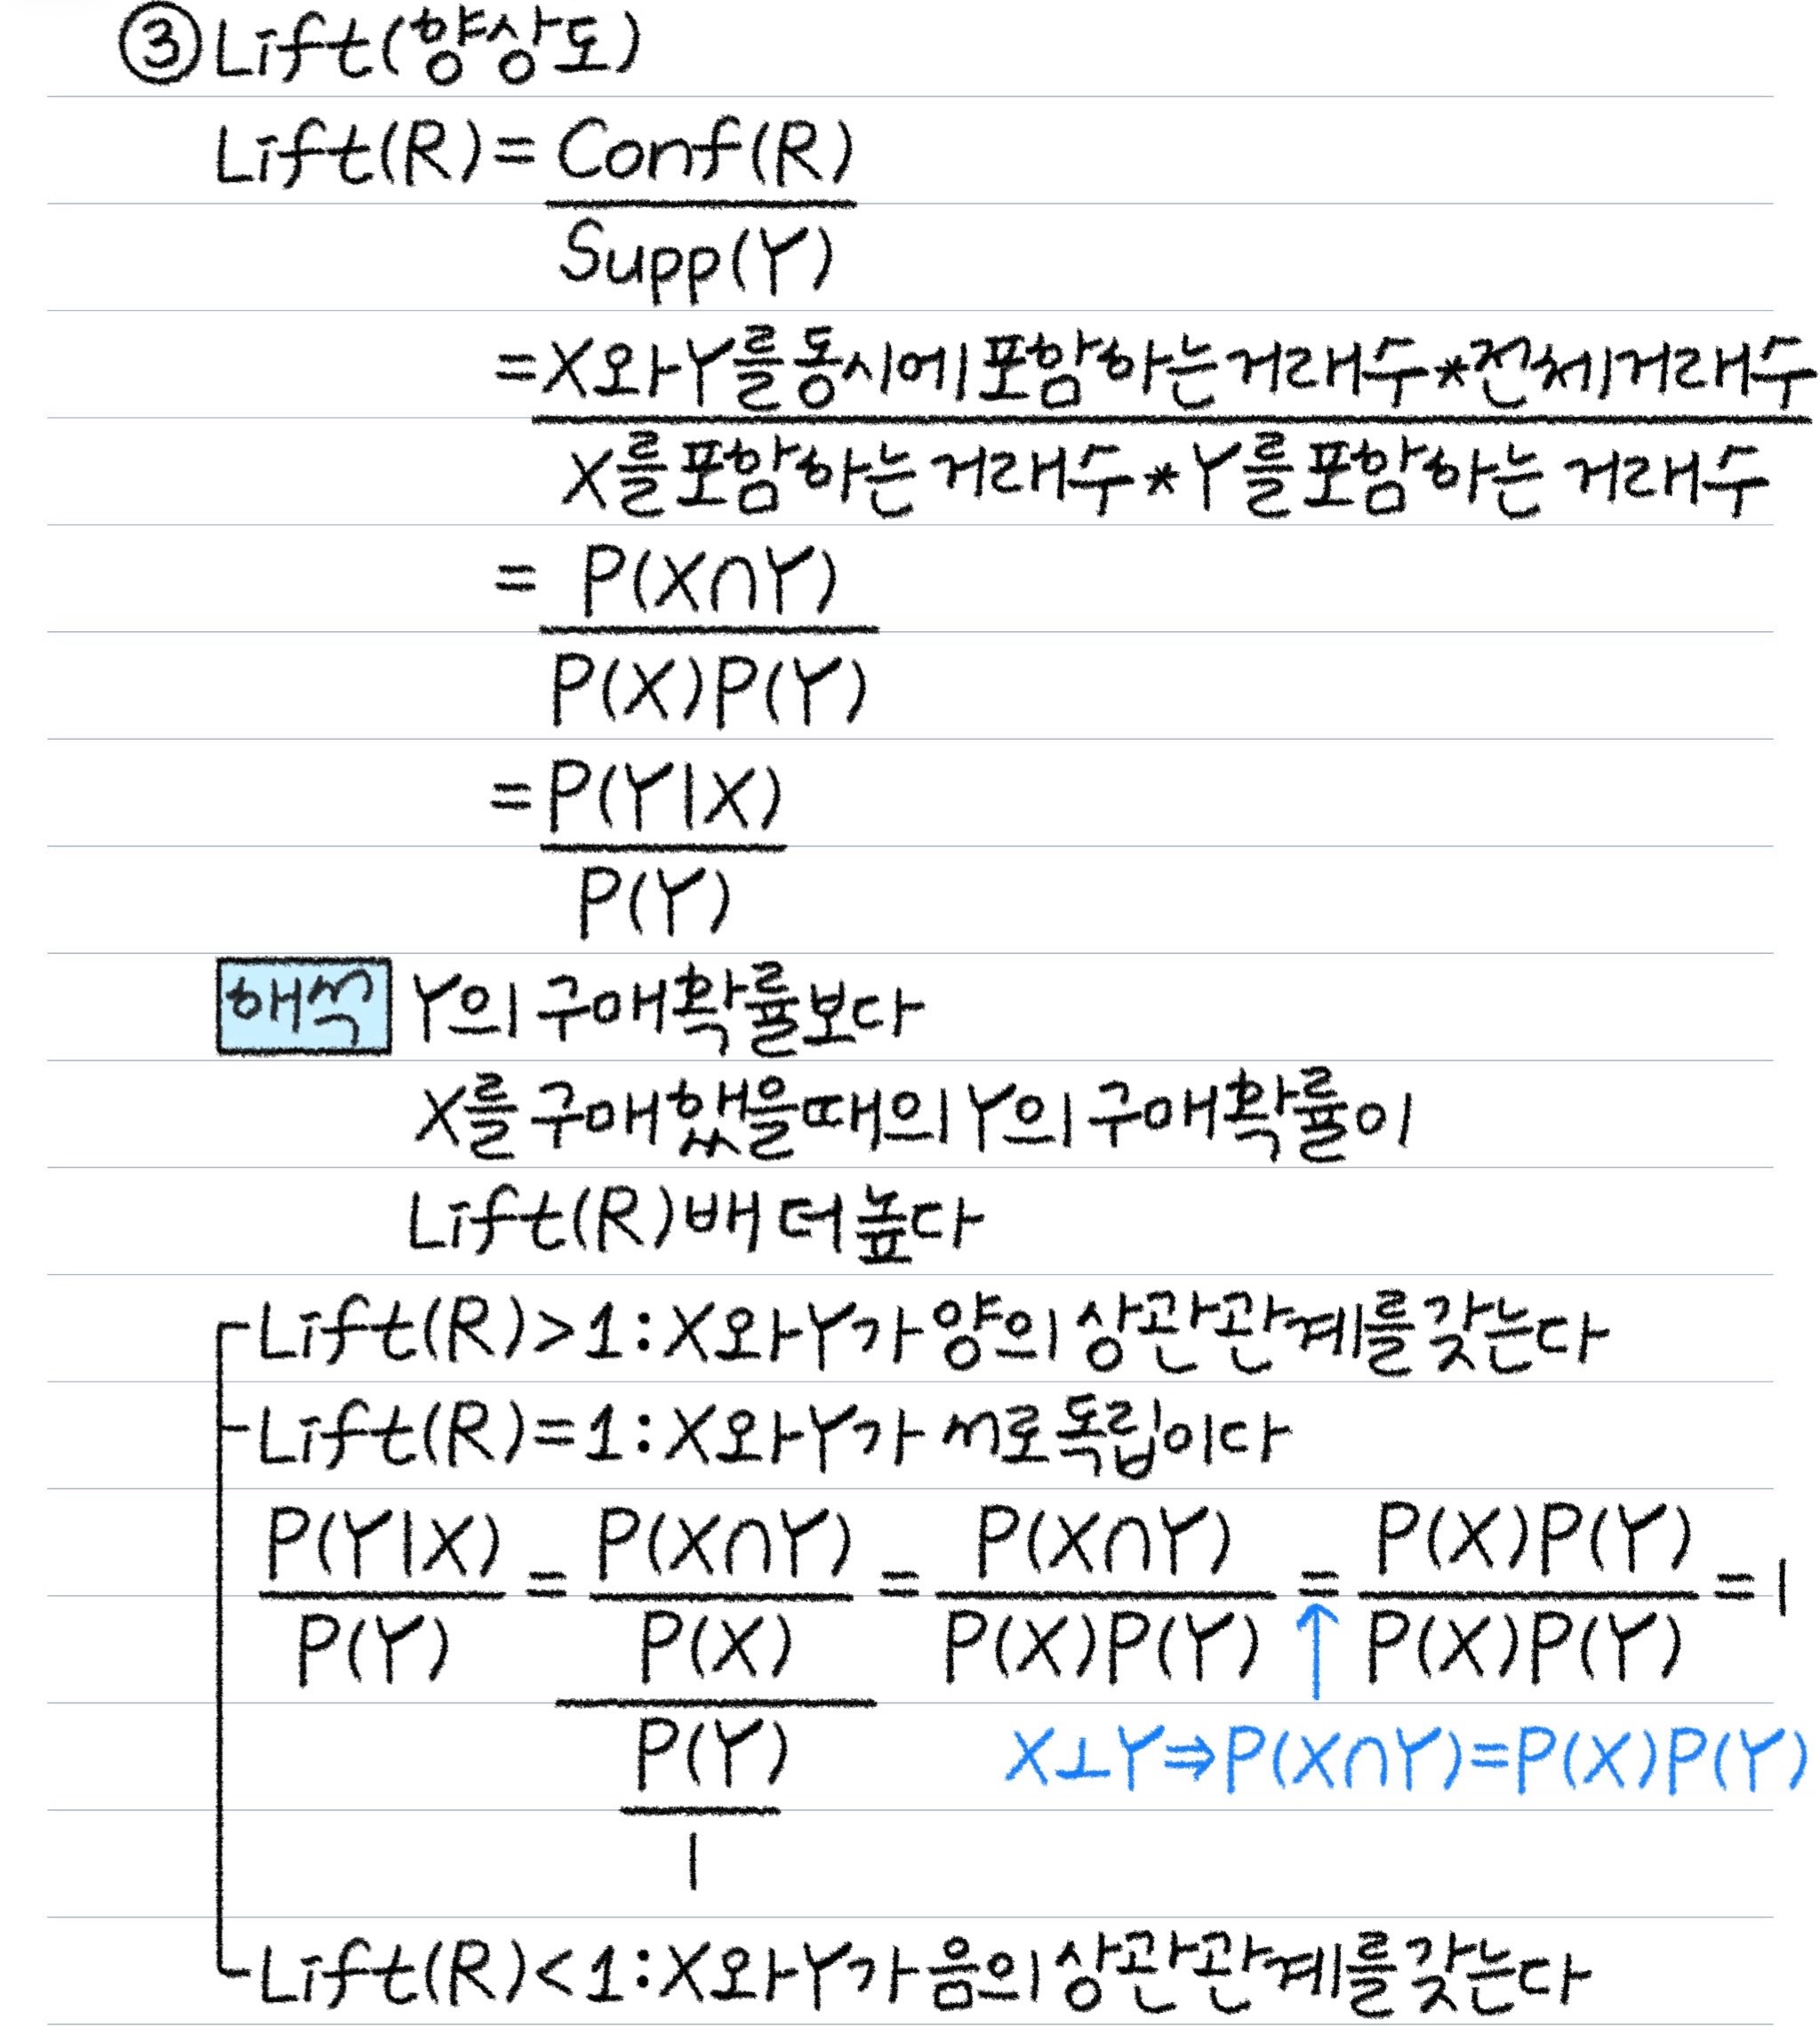 ③ Lift(향상도)
Lift(R) = Conf(R)
Supp(Y)
= X와 Y를 동시에 포함하는 거래 수 * 전체 거래 수
X를 포함하는 거래 수 * Y를 포함하는 거래 수
= P(X∩Y)
P(X)P(Y)
= P(Y|X)
P(Y)
해석 Y의 구매 확률보다
X를 구매했을 때의 Y의 구매 확률이
Lift(R)배 더 높다
Lift(R)>1: X와 Y가 양의 상관관계를 갖는다
Lift(R)=1: X와 Y가 서로 독립이다
P(Y|X) = P(X∩Y) = P(X∩Y) = P(X)P(Y) = 1
P(Y) P(X) P(X)P(Y) ↑ P(X)P(Y)
P(Y) X⊥Y⇒P(X∩Y)=P(X)P(Y)
1
Lift(R)<1: X와 Y가 음의 상관관계를 갖는다